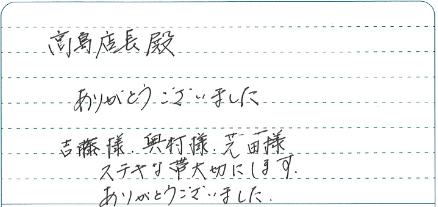 高島店長殿
ありがとうございました
吉藤様、奥村様、芝田様
ステキな帯大切にします.
ありがとうございました.